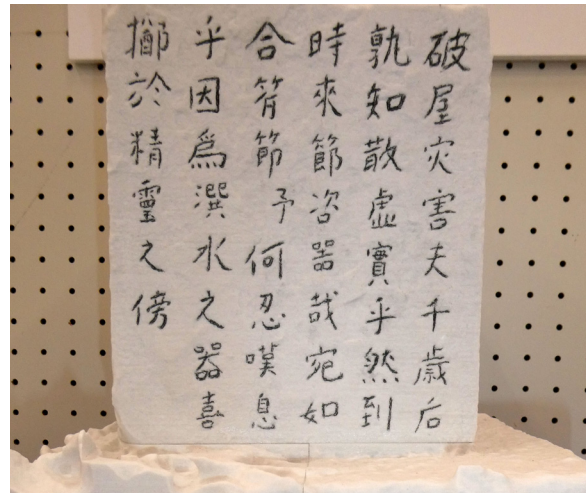 破屋灾害夫千歳后
孰知散虚實乎然到
時來節咨器哉宛如
合符節予何忍嘆息
乎因爲潠水之器喜
擲於精靈之傍